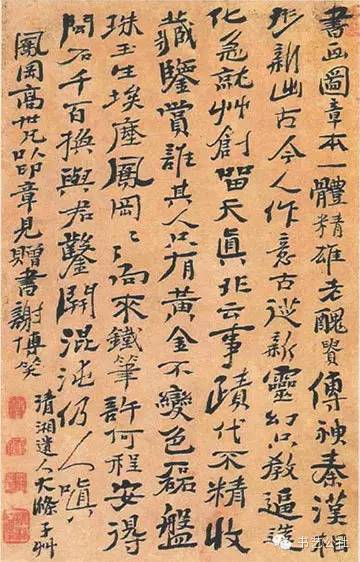 書画圖章本一體精雄老醜貴傳神秦漢相
形新出古今人作意古從新靈幻只教逼造
化急就艸創留天真非云事蹟代不精收
藏鑒賞誰其人只有黃金不變色磊盤
珠玉生埃塵鳳岡〻向來鐵筆許何程安得
閒石千百換與君鑿開混沌仍人嗔
鳳岡高世兄以印章見贈書謝博笑
清湘遺人大滌子艸
书艺公社